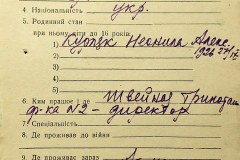 4. Національність укр.
5. Родинний стан
при ньому діти до 16 років:
1) Курпек Неоніла Алекс.
2) 1926 27/IV
3)
4)
5)
6. Ким працює і де Швейна Трикотаж
ф-ка №9 – директор
7. Спеціяльність
8. Де проживав до війни
9. Де проживає зараз